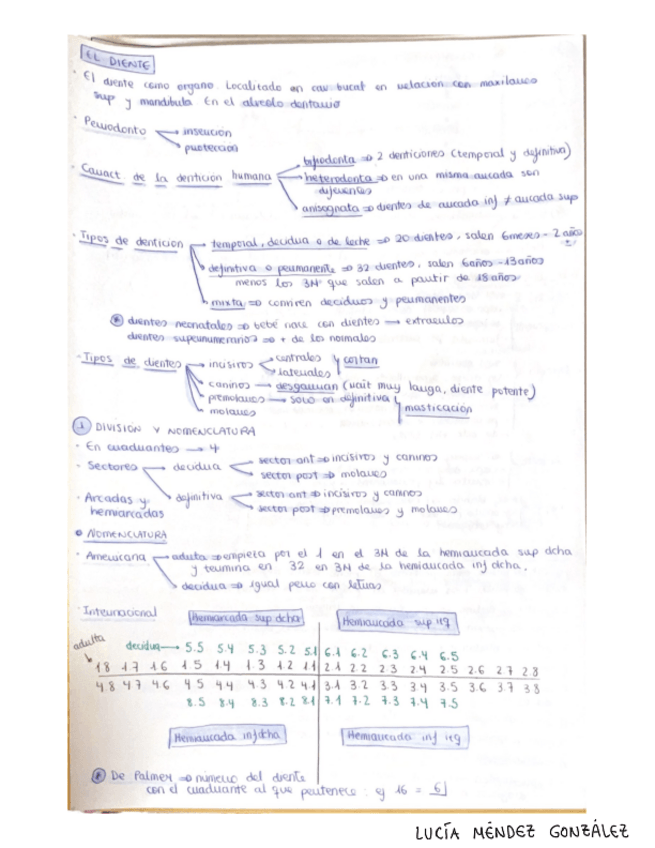 EL DIENTE
· El diente como organo. Localitado en cav bucal en relación con maxilares
sup y mandibula. En el alveolo dentario
· Periodonto → inserción
→ protección
· Caract de la dentición humana → bifiodonta => 2 denticiones (temporal y definitiva)
→ heterodonta => en una misma arcada son
diferentes
→ anisognata => dientes de arcada inf ≠ arcada sup
· Tipos de dentición → temporal, decidua o de leche => 20 dientes, salen 6 meses - 2 años
→ definitiva o permanente => 32 dientes, salen 6años - 13años
menos los 3M que salen a partir de 18 años
→ mixta => conviven deciduos y permanentes
* dientes neonatales => bebé nace con dientes → extraerlos
dientes supernumerarios => + de los normales
· Tipos de dientes → incisivos → centrales } cortan
→ laterales
→ caninos → desgarran (raiz muy larga, diente potente)
→ premolares → solo en definitiva } masticación
→ molares
1 DIVISIÓN Y NOMENCLATURA
· En cuadrantes → 4
· Sectores → decidua → sector ant => incisivos y caninos
→ sector post => molares
· Arcadas y → definitiva → sector ant => incisivos y caninos
hemiarcadas → sector post => premolares y molares
• NOMENCLATURA
· Americana → adulta => empieza por el 1 en el 3M de la hemiarcada sup dcha
y termina en 32 en 3M de la hemiarcada inf dcha.
→ decidua => igual pero con letras
· Internacional Hemiarcada sup dcha Hemiarcada sup izq
adulta decidua → 5.5 5.4 5.3 5.2 5.1 6.1 6.2 6.3 6.4 6.5
18 17 16 15 1.4 1.3 1.2 1.1 2.1 2.2 2.3 2.4 2.5 2.6 2.7 2.8
4.8 4.7 4.6 4.5 4.4 4.3 4.2 4.1 3.1 3.2 3.3 3.4 3.5 3.6 3.7 3.8
8.5 8.4 8.3 8.2 8.1 7.1 7.2 7.3 7.4 7.5
Hemiarcada inf dcha Hemiarcada inf izq
* De Palmer => número del diente
con el cuadrante al que pertenece: ej 16 = 6|
LUCÍA MÉNDEZ GONZÁLEZ